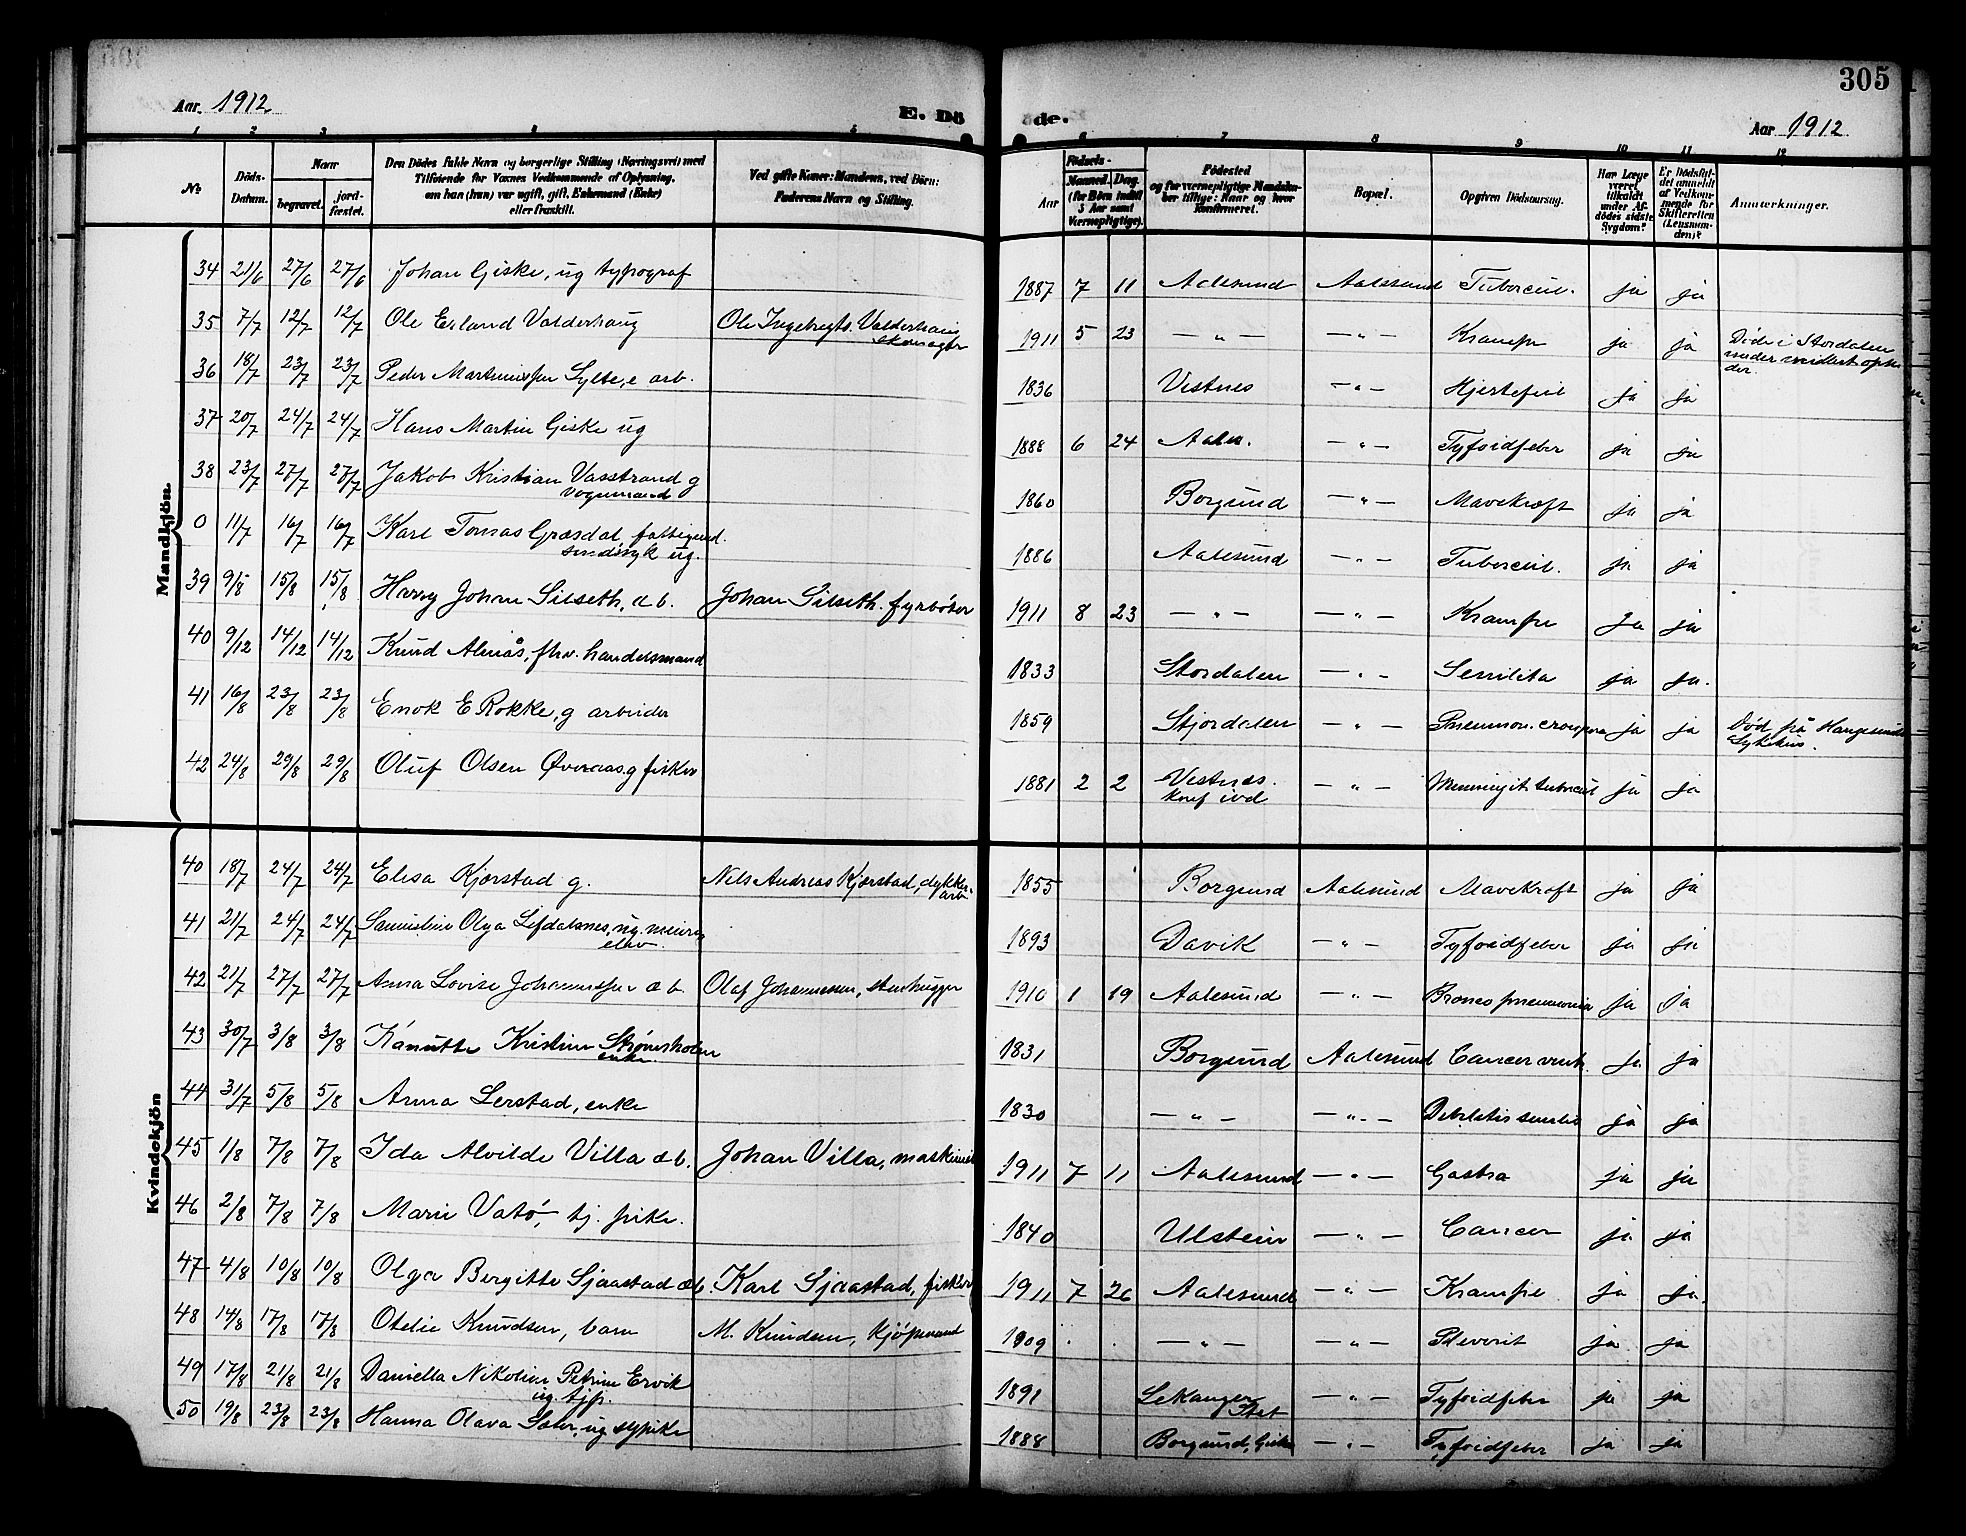 305
Aar. 1912.
E. Döde.
Aar 1912
1 2 3 6 7 8 9 10 11 12
No
Döds-Datum.
Naar
begravet.
jord-fæstet.
Den Dödes fulde Navn og borgerlige Stilling (Næringsvei) med
Tilföiende for Voxnes Vedkommende af Oplysning,
om han (hun) var ugift, gift, Enkemand (Enke)
eller fraskilt.
Ved gifte Koner: Mandens, ved Börn:
Faderens Navn og Stilling.
Födsels-
Aar
Maaned. Dag.
(for Börn indtil
5 Aar samt
Værnepligtige).
Födested
og for værnepligtige Mandskaber tillige: Naar og hvor
konfirmeret.
Bopæl.
Opgiven Dödsaarsag.
Har Læge
været
tilkaldt
under Afdödes sidste
Sygdom?
Er Dödsfaldet anmeldt
af Vedkommende for
Skifteretten
(Lensmanden)?
Anmærkninger.
Mandkjön.
34 21/6 27/6 27/6 Johan Giske, ug typograf 1887 7 11 Aalesund Aalesund Tubercul. ja ja
35 7/7 12/7 12/7 Ole Erland Valderhaug Ole Ingebregts. Valderhaug 1911 5 23 — " — — " — Krampe ja ja Døde i Stordalen
36 18/7 23/7 23/7 Peder Martinussen Sylte, e arb. 1836 Vestnes — " — Hjertefeil ja ja
37 20/7 24/7 24/7 Hans Martin Giske ug 1888 6 24 Aales. — " — Tyfoidfeber ja ja
38 23/7 27/7 27/7 Jakob Kristian Vasstrand g
vognmand 1860 Borgund — " — Mavekræft ja ja
0 11/7 16/7 16/7 Karl Tomas Græsdal, fattigund.
sindssyk ug. 1886 Aalesund — " — Tubercul. ja ja
39 9/8 15/8 15/8 Harry Johan Silseth, d b. Johan Silseth. fyrbøter 1911 8 23 — " — — " — Krampe Ja ja
40 9/12 14/12 14/12 Knud Almås, fhv. handelsmand 1833 Stordalen — " — Senilita ja ja.
41 16/8 23/8 23/8 Enok E Rokke, g arbeider 1859 Stjordalen — " — Pneumon. crouposa ja ja Død på Haugesunds
Sykehus.
42 24/8 29/8 29/8 Oluf Olsen Øveraas, g fisker 1881 2 2 Vestnes. — " — Meningit tubercul ja ja
Kvindekjön
40 18/7 24/7 24/7 Elisa Kjørstad g. Nils Andreas Kjørstad, dykker-
arb 1855 Borgund Aalesund Mavekræft ja ja
41 21/7 24/7 24/7 Samueline Olga Lefdalsnes, ug. meieri
elev. 1893 Davik — " — Tyfoidfeber ja ja
42 21/7 27/7 27/7 Anna Lovise Johannessen d b. Olaf Johannessen, stenhugger 1910 1 19 Aalesund — " — Broncopneumonia ja ja
43 30/7 3/8 3/8 Kanutte Kristine
enke 1831 Borgund Aalesund Cancer ventr. ja ja
44 31/7 5/8 5/8 Anna Lerstad, enke 1830 — " — — " — Debilitas senilis ja ja
45 1/8 7/8 7/8 Ida Alvilde Villa d b. Johan Villa, maskinist 1911 7 11 Aalesund — " — Gastra ja ja
46 2/8 7/8 7/8 Marie Vatö, tj. pike. 1840 Ulstein — " — Cancer ja ja
47 4/8 10/8 10/8 Olga Bergitte Sjaastad db. Karl Sjaastad, fisker 1911 7 26 Aalesund — " — Krampe ja ja.
48 14/8 17/8 17/8 Otelie Knudsen, barn M. Knudsen, kjöpmand 1909 — " — — " — Plevrit ja ja
49 17/8 21/8 21/8 Daniella Nikoline Petrine Ervik
ug. tjp. 1891 Lekanger
Stat — " — Tyfoidfeber ja ja
50 19/8 23/8 23/8 Hanna Olava Sæter, ug sypike 1888 Borgund, Giske — " — Tyfoidfeber ja ja